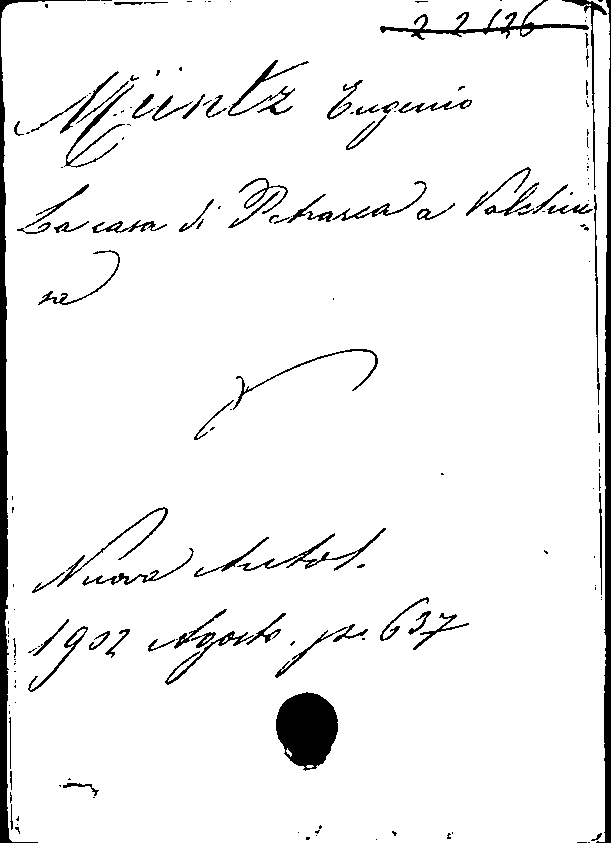 22126
Müntz Eugenio
La casa di Petrarca a Valchiu=
sa
Nuova Antol.
1902 Agosto. pa. 637